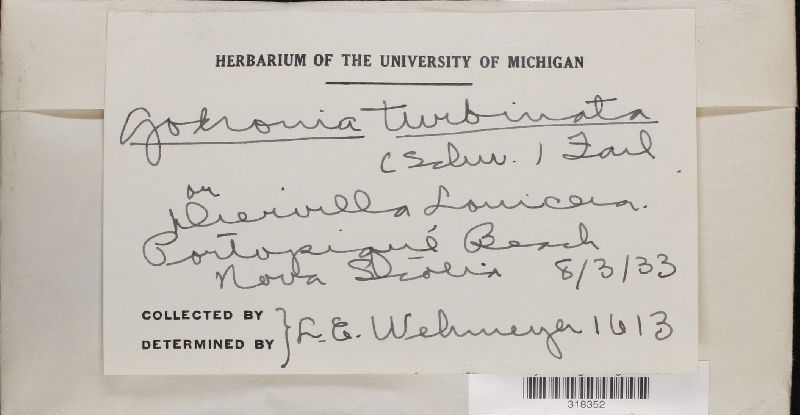 HERBARIUM OF THE UNIVERSITY OF MICHIGAN
turbinata
(Schw.) Farl
on
Diervilla Lonicera.
Portopique Beach
Nova Scotia 8/3/33
COLLECTED BY
DETERMINED BY } L. E. Wehmeyer 1613
318352